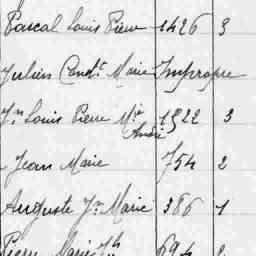 Pascal Louis Pierre 1426 3
Julien Const.t Marie Impropre
J.n Louis Pierre M.ie André 1922 3
Jean Marie 754 2
Auguste J.n Marie 386 1
Pierre Marie J.h 694 2